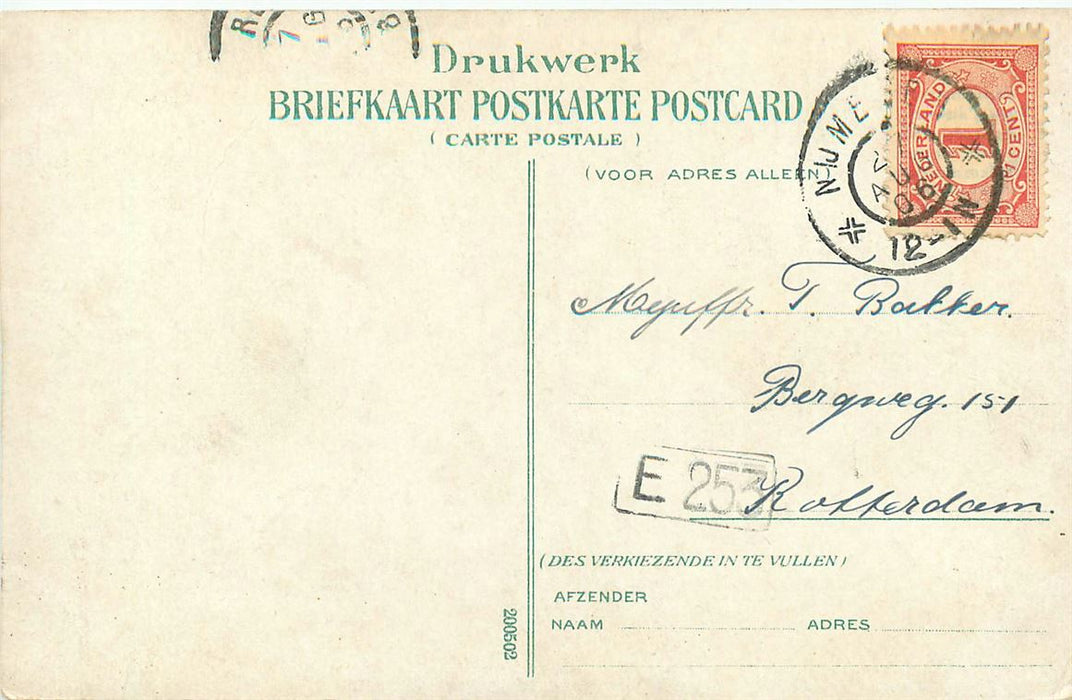 Drukwerk
BRIEFKAART POSTKARTE POSTCARD
( CARTE POSTALE )
(VOOR ADRES ALLEEN)
NEDERLAND
1
1 CENT
NIJME
AU
12-1N
Mejuffr. T. Bakker.
Bergweg. 151
E 253
Rotterdam.
(DES VERKIEZENDE IN TE VULLEN)
AFZENDER
NAAM ADRES
200502